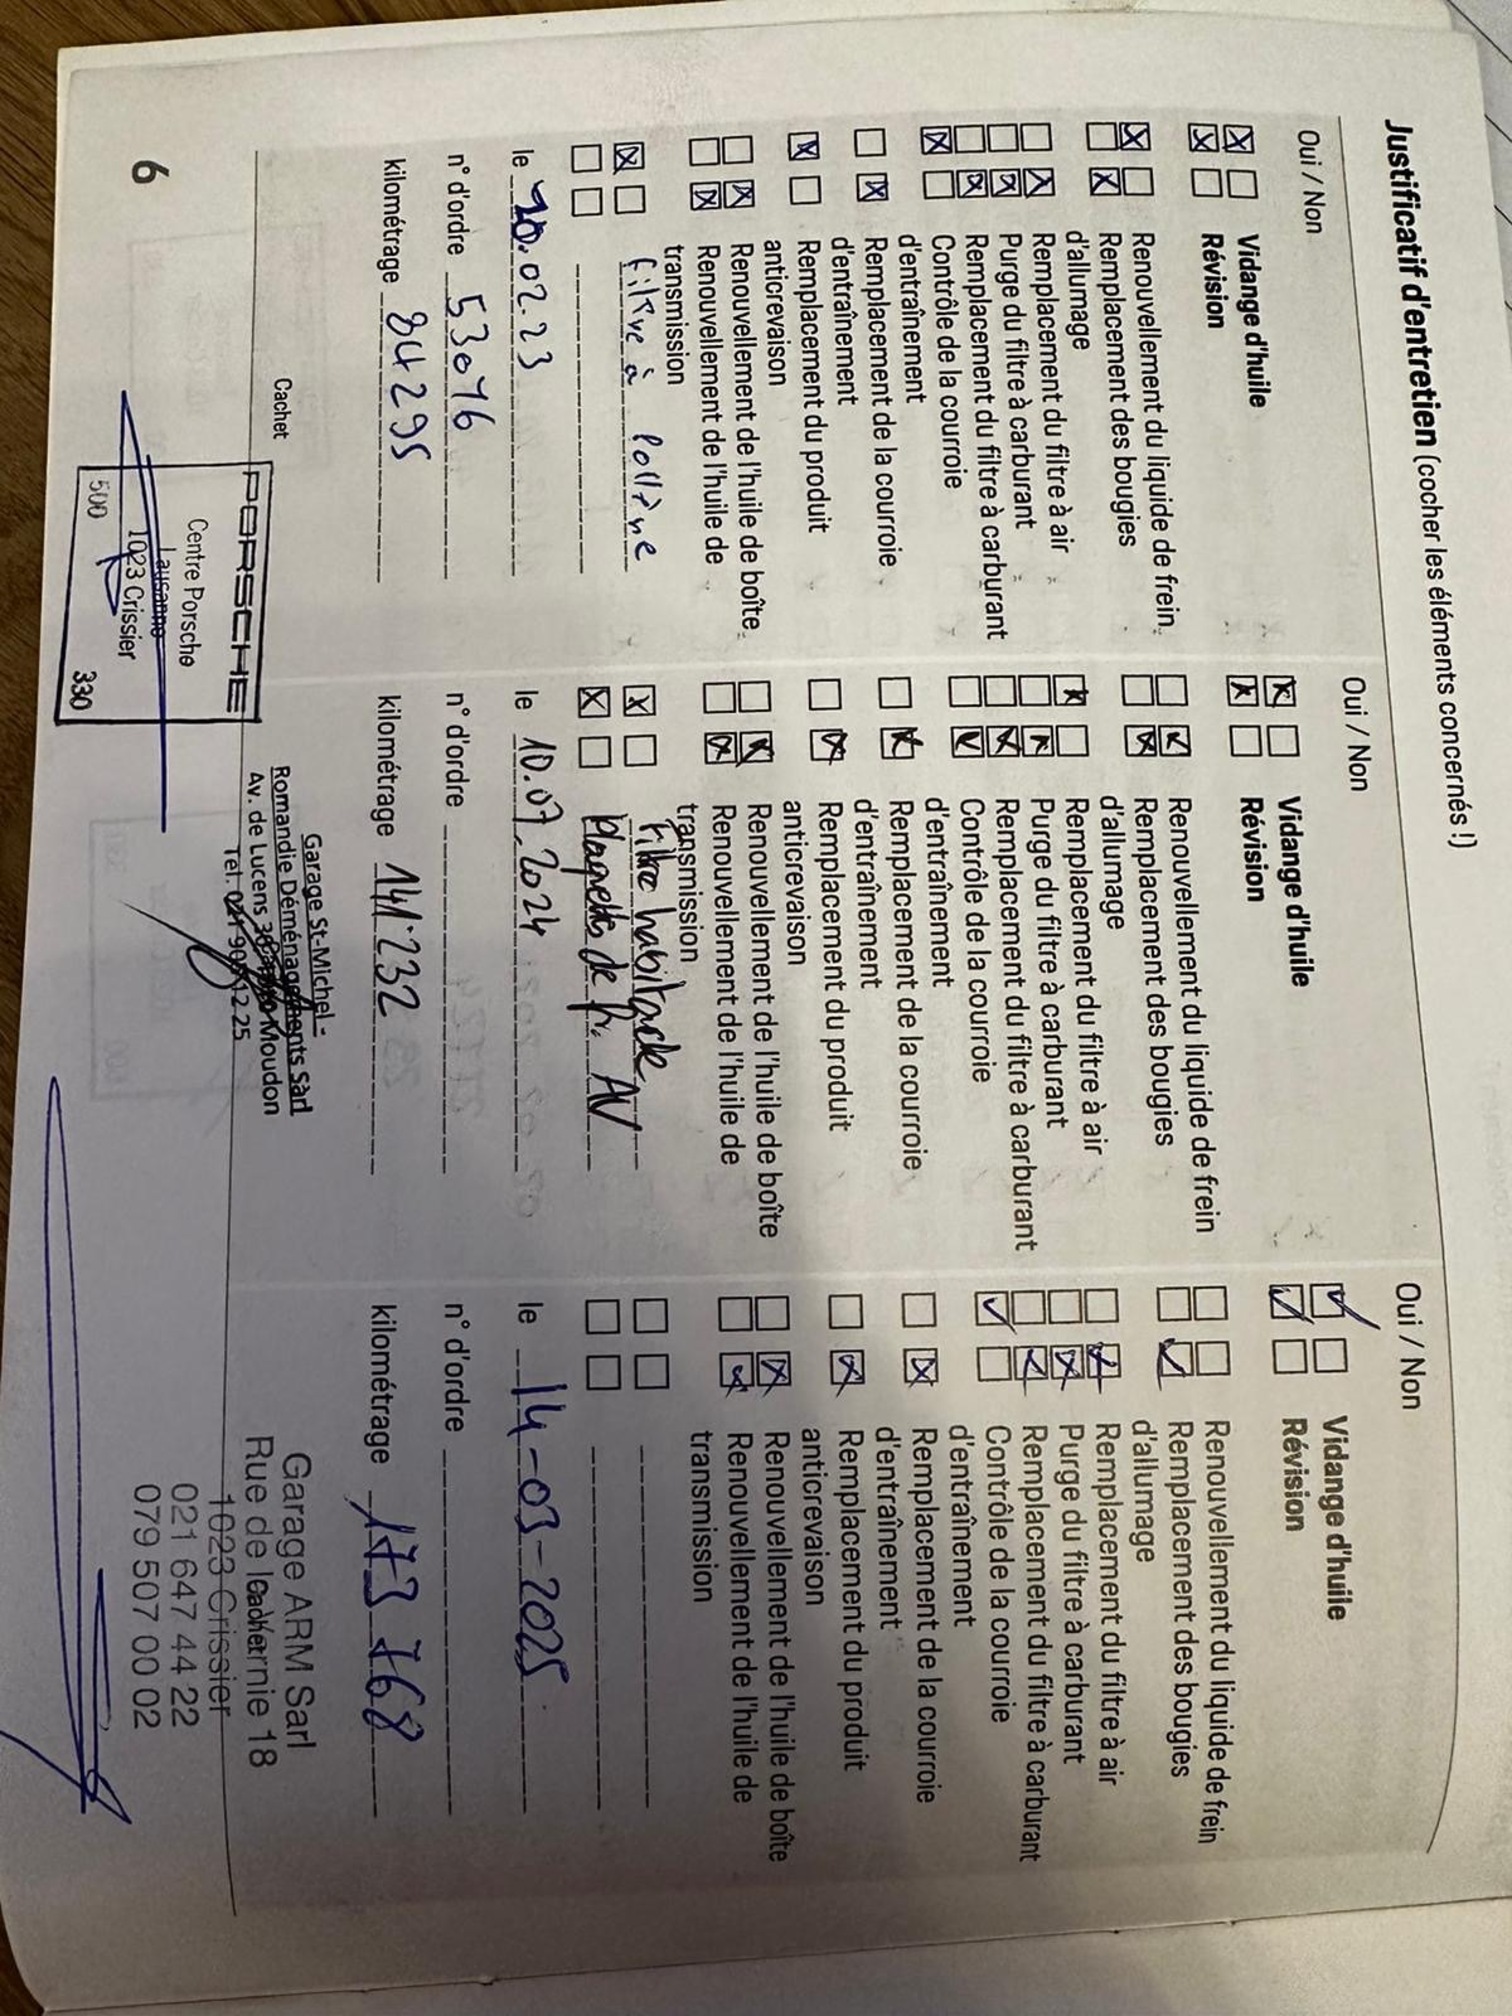 Justificatif d'entretien (cocher les éléments concernés !)
Oui / Non
Vidange d'huile
Révision
Renouvellement du liquide de frein
Remplacement des bougies
d'allumage
Remplacement du filtre à air
Purge du filtre à carburant
Remplacement du filtre à carburant
Contrôle de la courroie
d'entraînement
Remplacement de la courroie
d'entraînement
Remplacement du produit
anticrevaison
Renouvellement de l'huile de boîte
Renouvellement de l'huile de
transmission
filtre à pollène
le 20.02.23
n° d'ordre 53076
kilométrage 84295
Cachet
PORSCHE
Centre Porsche
Lausanne
1023 Crissier
500 330
6
Oui / Non
Vidange d'huile
Révision
Renouvellement du liquide de frein
Remplacement des bougies
d'allumage
Remplacement du filtre à air
Purge du filtre à carburant
Remplacement du filtre à carburant
Contrôle de la courroie
d'entraînement
Remplacement de la courroie
d'entraînement
Remplacement du produit
anticrevaison
Renouvellement de l'huile de boîte
Renouvellement de l'huile de
transmission
Filtre habitacle
plaquettes de fr. AV
le 10.07.2024
n° d'ordre
kilométrage 141.232
Garage St-Michel -
Romandie Déménagements Sàrl
Av. de Lucens Moudon
Tél. 021 905 12 25
Oui / Non
Vidange d'huile
Révision
Renouvellement du liquide de frein
Remplacement des bougies
d'allumage
Remplacement du filtre à air
Purge du filtre à carburant
Remplacement du filtre à carburant
Contrôle de la courroie
d'entraînement
Remplacement de la courroie
d'entraînement
Remplacement du produit
anticrevaison
Renouvellement de l'huile de boîte
Renouvellement de l'huile de
transmission
le 14-03-2025
n° d'ordre
kilométrage 173 768
Garage ARM Sarl
Rue de 18
1023 Crissier
021 647 44 22
079 507 00 02